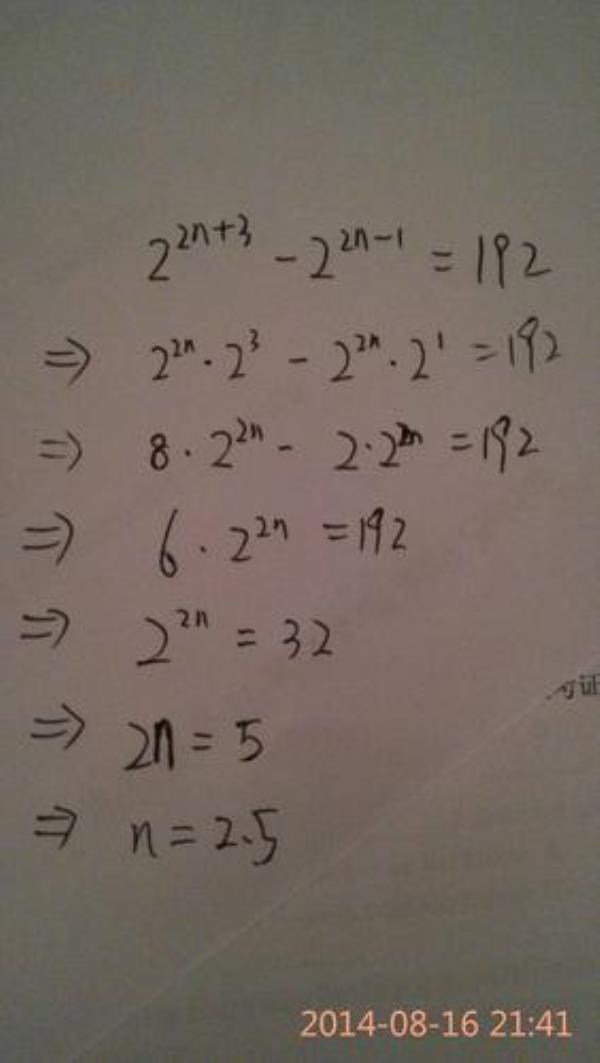 2^{2n+3} - 2^{2n-1} = 192
⇒ 2^{2n} · 2^3 - 2^{2n} · 2^1 = 192
⇒ 8 · 2^{2n} - 2 · 2^{2n} = 192
⇒ 6 · 2^{2n} = 192
⇒ 2^{2n} = 32
⇒ 2n = 5
⇒ n = 2.5
证
2014-08-16 21:41